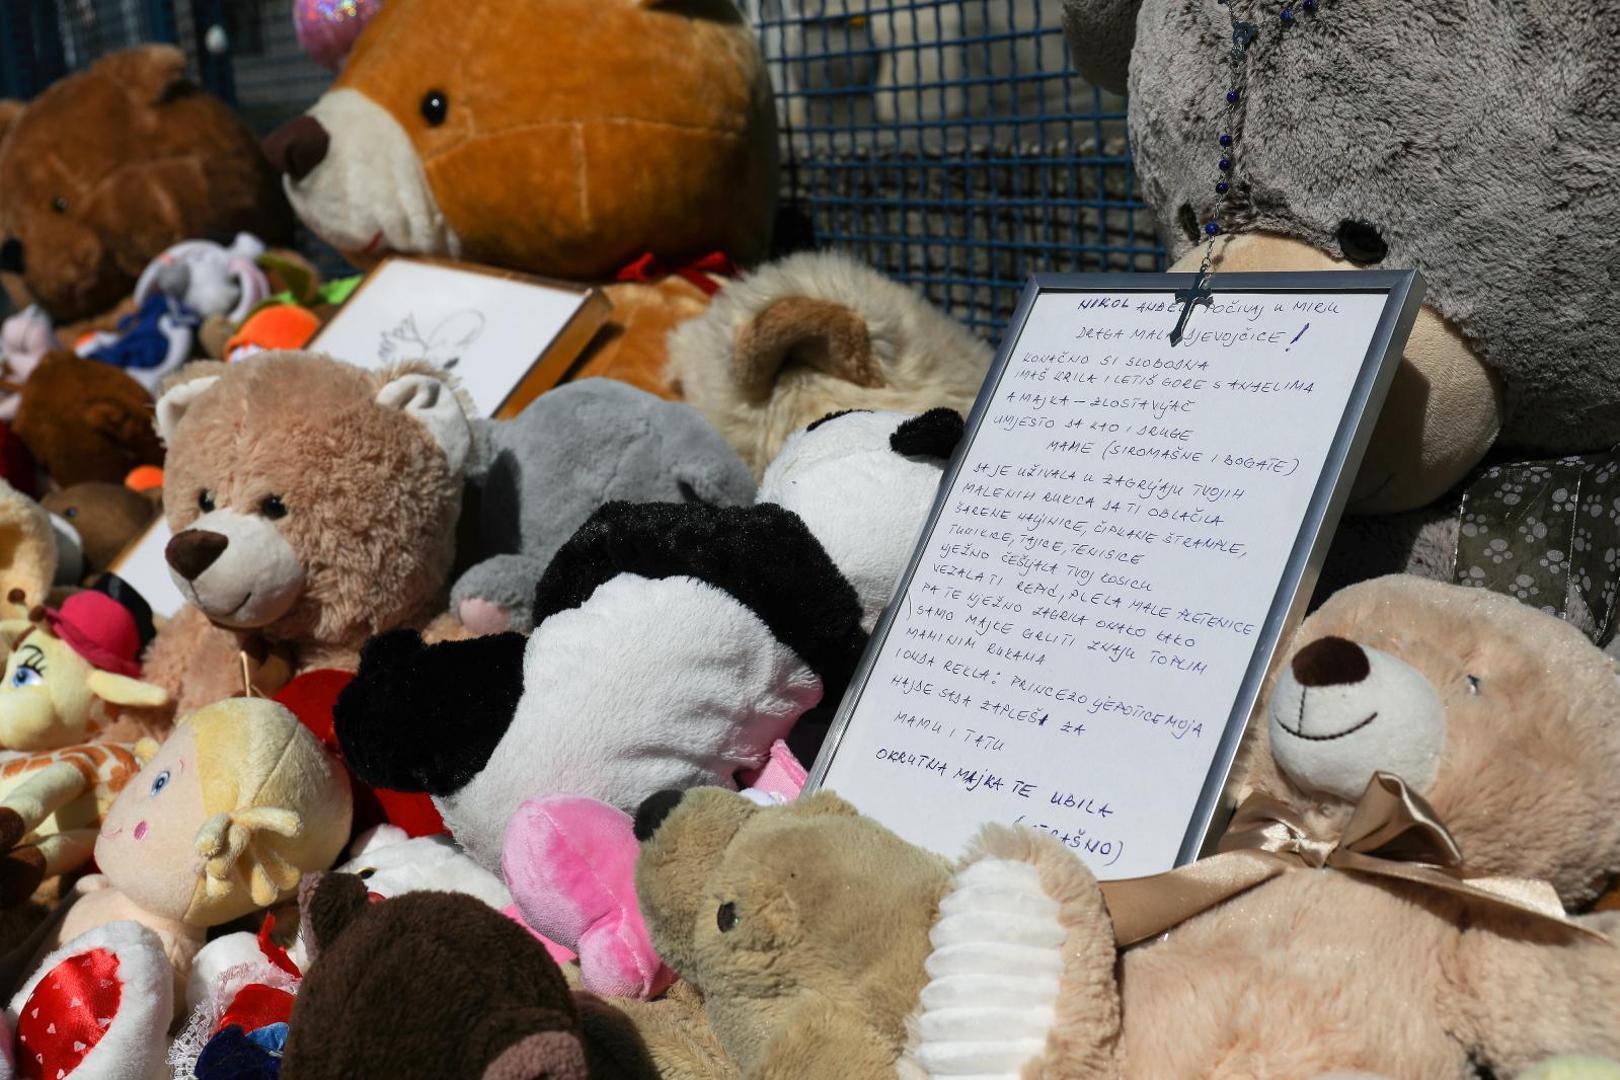 NIKOL ANĐELE POČIVAJ U MIRU
DRAGA MALA DJEVOJČICE!
KONAČNO SI SLOBODNA
IMAŠ KRILA I LETIŠ GORE S ANJELIMA
A MAJKA – ZLOSTAVJAČ
UMJESTO DA KAO I DRUGE
MAME (SIROMAŠNE I BOGATE)
DA JE UŽIVALA U ZAGRLJAJU TVOJIH
MALENIH RUKICA DA TI OBLAČILA
ŠARENE HALJINICE, ČIPKANE ŠTRAMPLE,
TUNIKICE, TAJICE, TENISICE
NJEŽNO ČEŠLJALA TVOJ KOSICU
VEZALA TI REPIĆ, PLELA MALE PLETENICE
PA TE NJEŽNO ZAGRLILA ONAKO KAKO
SAMO MAJKE GRLITI ZNAJU TOPLIM
MAMINIM RUKAMA
I ONDA REKLA: PRINCEZO LJEPOTICE MOJA
HAJDE SADA ZAPLEŠI ZA
MAMU I TATU
OKRUTNA MAJKA TE UBILA
(STRAŠNO)